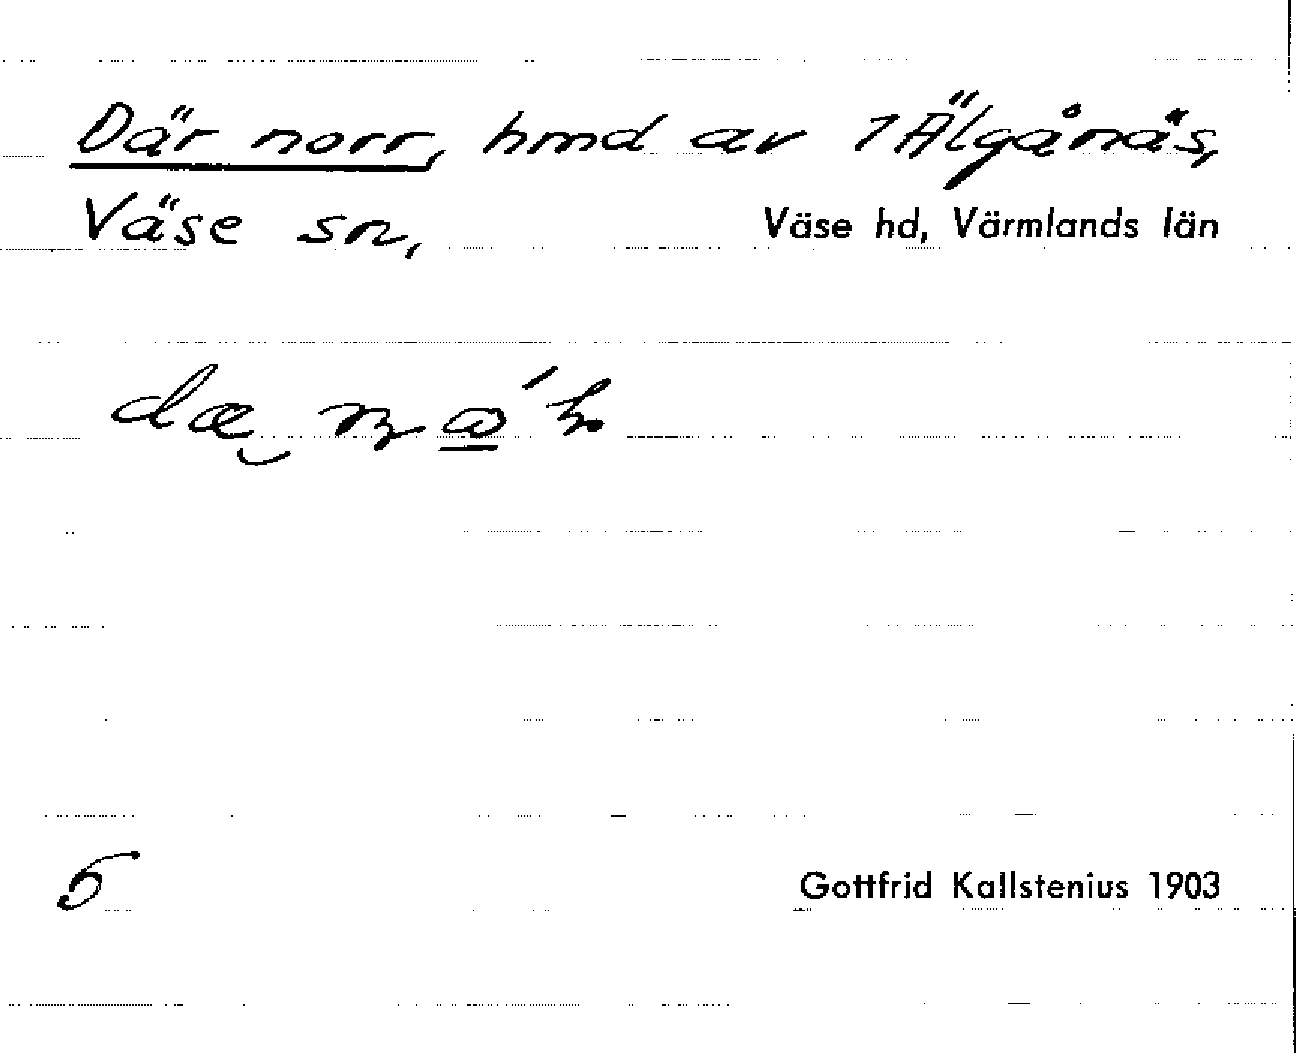 Där norr, hmd av 1 Älgånäs,
Väse sn, Väse hd, Värmlands län
5 Gottfrid Kallstenius 1903